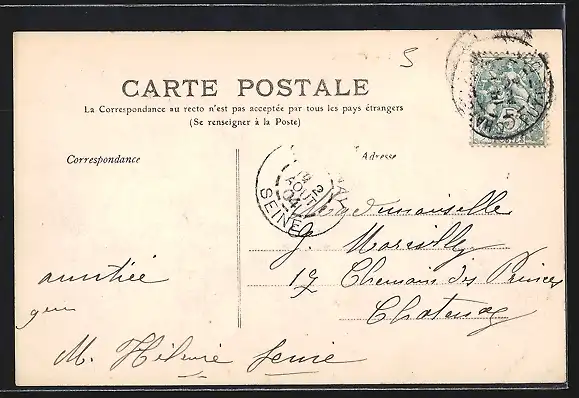 5
CARTE POSTALE
La Correspondance au recto n'est pas acceptée par tous les pays étrangers
(Se renseigner à la Poste)
Correspondance
Adresse
5c
2
AOUT
04
SEINE
Mademoiselle
G. Marcilly
17 Chemain des Princes
Chatenay
amitiée
M. Hélène